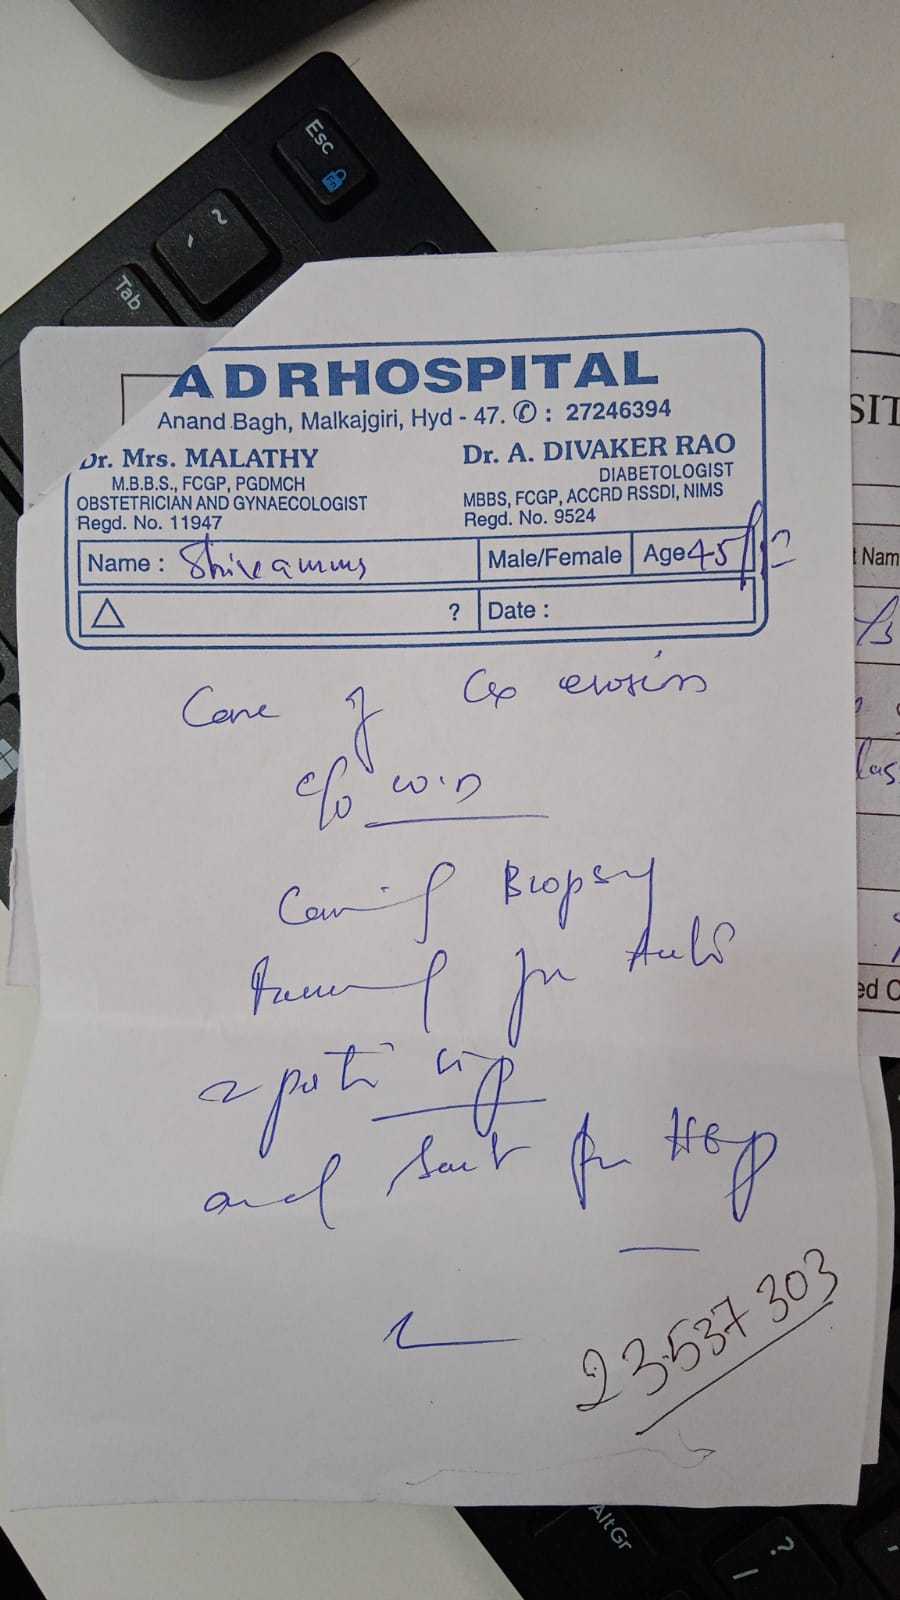 Esc
Fn
~
Tab
ADRHOSPITAL
Anand Bagh, Malkajgiri, Hyd - 47. ✆ : 27246394
Dr. Mrs. MALATHY
M.B.B.S., FCGP, PGDMCH
OBSTETRICIAN AND GYNAECOLOGIST
Regd. No. 11947
Dr. A. DIVAKER RAO
DIABETOLOGIST
MBBS, FCGP, ACCRD RSSDI, NIMS
Regd. No. 9524
Name : Male/Female Age 45/
△ ? Date :
Case of Cx erosion
c/o W.D
Biopsy
for
and sent for HEp
23537303
SIT
t Nam
las
ed C
Alt Gr
?
/